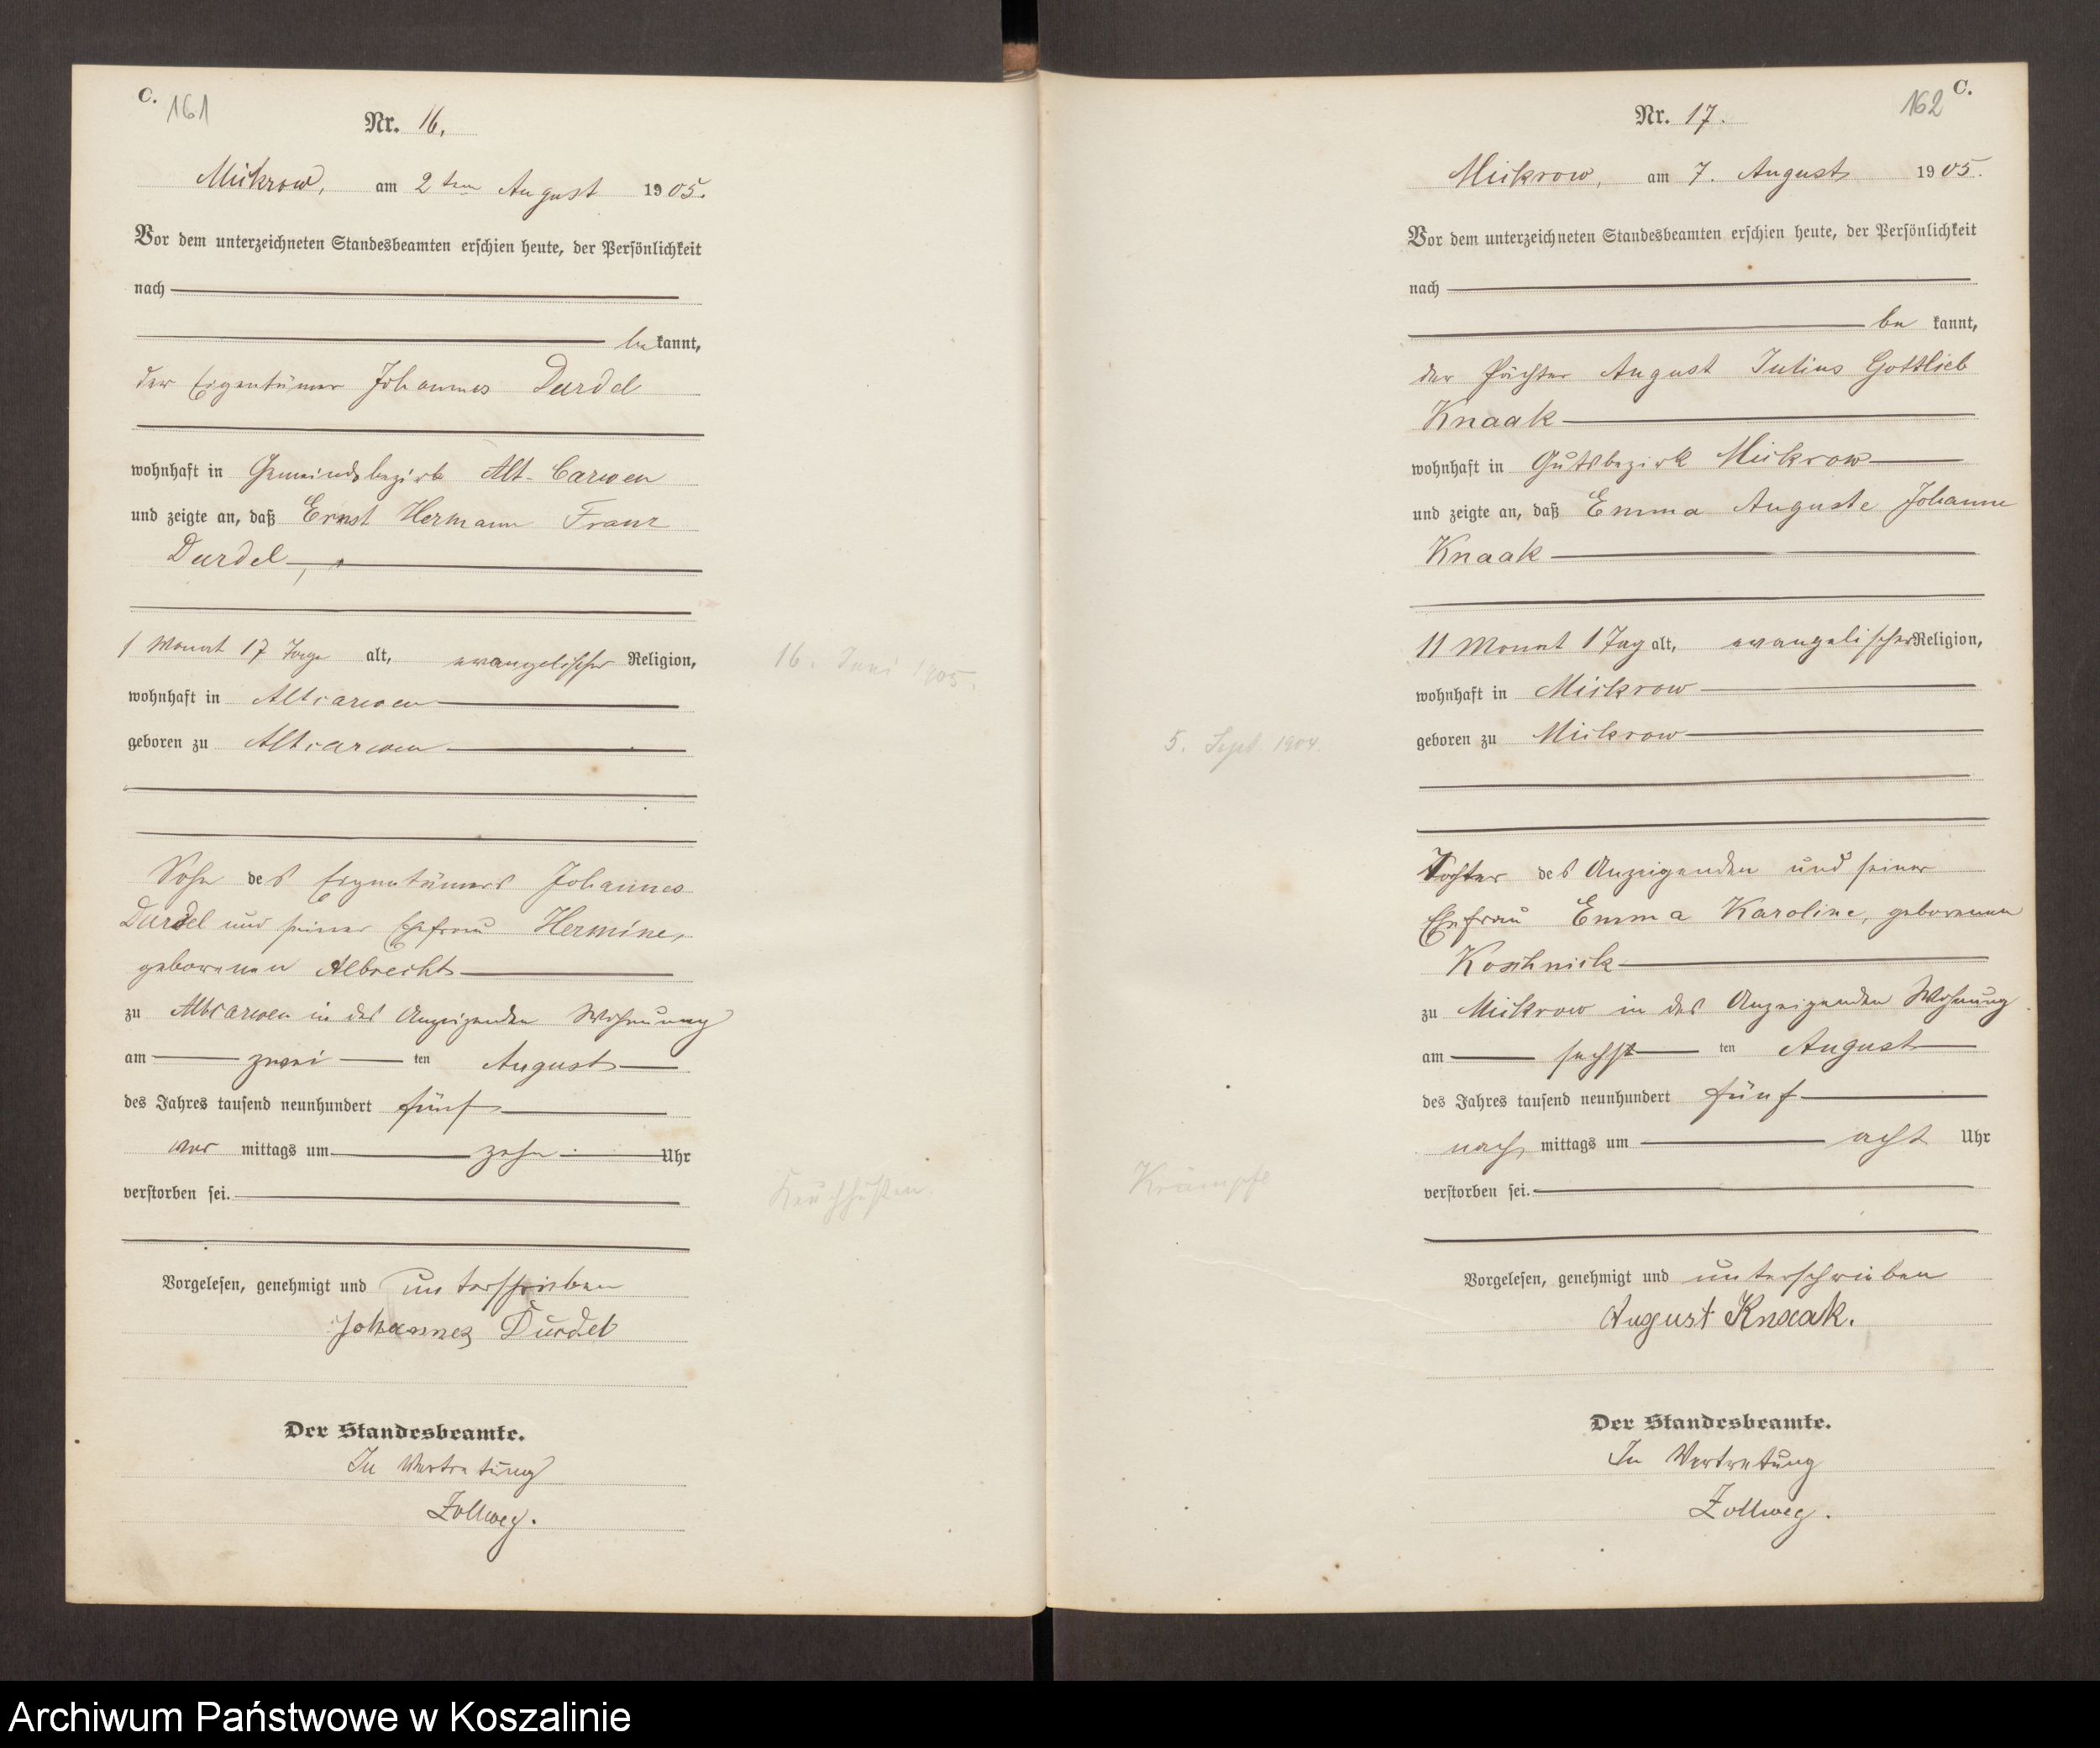 C.
161
Nr. 16.
Mikrow, am 2ten August 1905.
Vor dem unterzeichneten Standesbeamten erschien heute, der Persönlichkeit
nach
be kannt,
der Eigentümer Johannes Durdel
wohnhaft in Gemeindebezirk Alt-Carwen
und zeigte an, daß Ernst Hermann Franz
Durdel,
1 Monat 17 Tage alt, evangelischer Religion,
wohnhaft in Altcarwen
geboren zu Altcarwen
Sohn des Eigentümers Johannes
Durdel und seiner Ehefrau Hermine,
geborenen Albrecht
zu Altcarwen in des Anzeigenden Wohnung
am zwei ten August
des Jahres tausend neunhundert fünf
vor mittags um zehn Uhr
verstorben sei.
Vorgelesen, genehmigt und unterschrieben
Johannes Durdel
Der Standesbeamte.
In Vertretung
Zollweg.
16. Juni 1905.
Keuchhusten.
162
C.
Nr. 17.
Mikrow, am 7. August 1905.
Vor dem unterzeichneten Standesbeamten erschien heute, der Persönlichkeit
nach
be kannt,
der Pächter August Julius Gottlieb
Knaak
wohnhaft in Gutsbezirk Mikrow
und zeigte an, daß Emma Auguste Johanne
Knaak
11 Monat 1 Tag alt, evangelischer Religion,
wohnhaft in Mikrow
geboren zu Mikrow
Tochter des Anzeigenden und seiner
Ehefrau Emma Karoline, geborenen
Koschnick
zu Mikrow in des Anzeigenden Wohnung
am sechst ten August
des Jahres tausend neunhundert fünf
nach mittags um acht Uhr
verstorben sei.
Vorgelesen, genehmigt und unterschrieben
August Knaak.
Der Standesbeamte.
In Vertretung
Zollweg.
5. Sept 1904.
Krämpfe
Archiwum Państwowe w Koszalinie